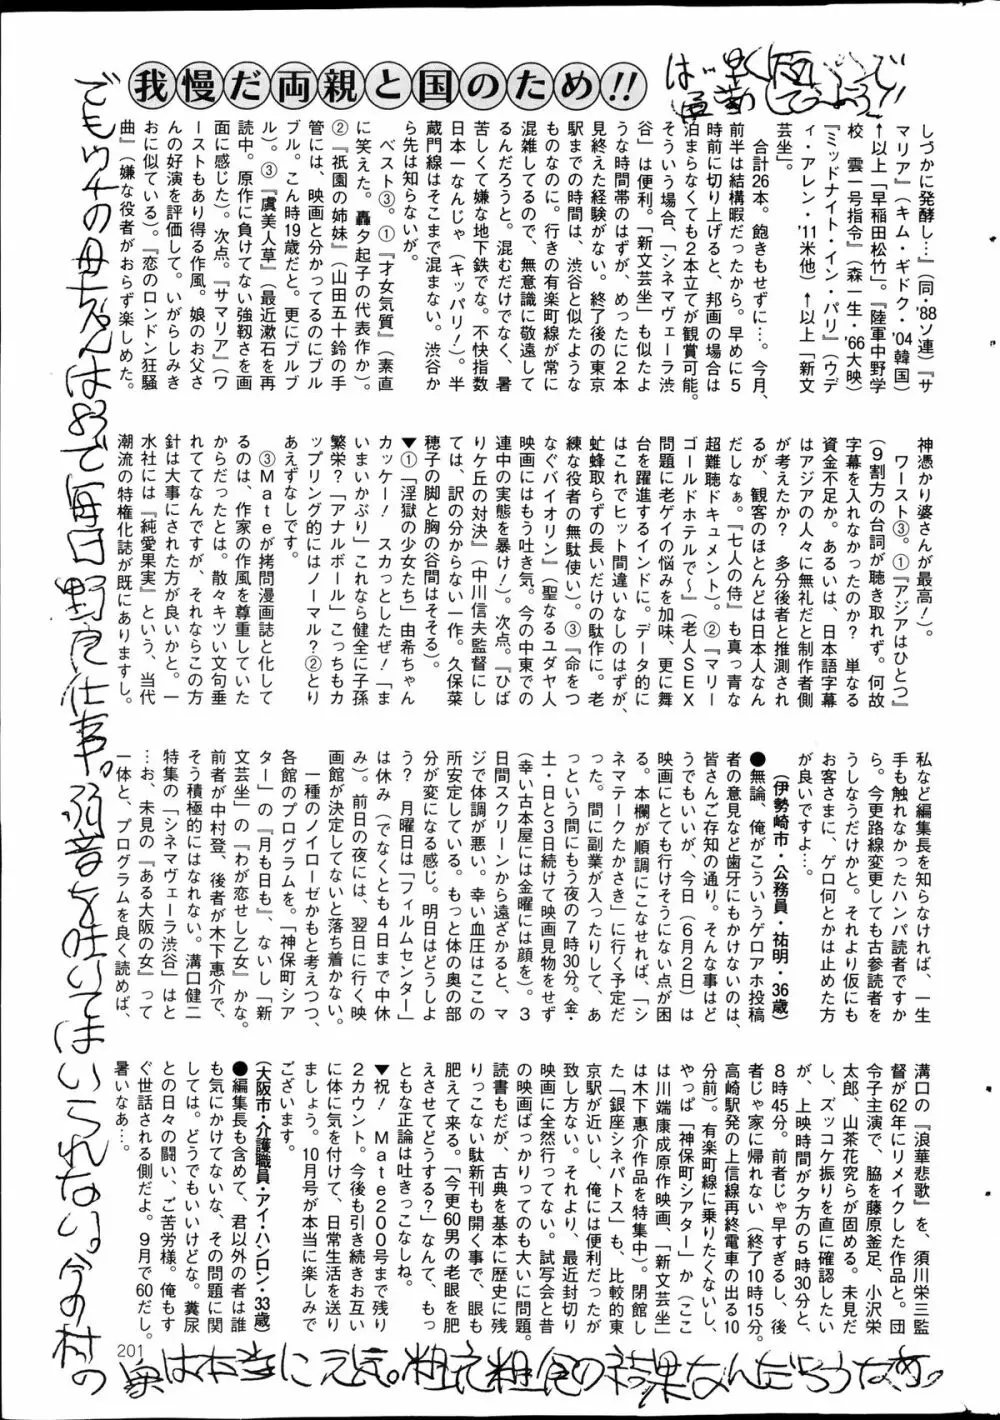 我慢だ両親と国のため!!
しづかに発酵し…』(同・'88ソ連)『サ
マリア』(キム・ギドク・'04韓国)
↑以上「早稲田松竹」。『陸軍中野学
校 雲一号指令』(森一生・'66大映)
『ミッドナイト・イン・パリ』(ウデ
ィ・アレン・'11米他)↑以上「新文
芸坐」。
合計26本。飽きもせずに…。今月、
前半は結構暇だったから。早めに5
時前に切り上げると、邦画の場合は
泊まらなくても2本立てが観賞可能。
そういう場合、「シネマヴェーラ渋
谷」は便利。「新文芸坐」も似たよ
うな時間帯のはずが、めったに2本
見終えた経験がない。終了後の東京
駅までの時間は、渋谷と似たような
ものなのに。行きの有楽町線が常に
混雑してるので、無意識に敬遠して
るんだろうと。混むだけでなく、暑
苦しくて嫌な地下鉄でな。不快指数
日本一なんじゃ(キッパリ!)。半
蔵門線はそこまで混まない。渋谷か
ら先は知らないが。
ベスト③。①『才女気質』(素直
に笑えた。轟夕起子の代表作か)。
②『祇園の姉妹』(山田五十鈴の手
管には、映画と分かってるのにブル
ブル。こん時19歳だと。更にブルブ
ル)。③『虞美人草』(最近漱石を再
読中。原作に負けてない強靱さを画
面に感じた)。次点。『サマリア』(ワ
ーストもあり得る作風。娘のお父さ
んの好演を評価して。いがらしみき
おに似ている)。『恋のロンドン狂騒
曲』(嫌な役者がおらず楽しめた。
神憑かり婆さんが最高!)。
ワースト③。①『アジアはひとつ』
(9割方の台詞が聴き取れず。何故
字幕を入れなかったのか? 単なる
資金不足か。あるいは、日本語字幕
はアジアの人々に無礼だと制作者側
が考えたか? 多分後者と推測され
るが、観客のほとんどは日本人なん
だしなぁ。『七人の侍』も真っ青な
超難聴ドキュメント)。②『マリー
ゴールドホテルで~』(老人SEX
問題に老ゲイの悩みを加味、更に舞
台を躍進するインドに。データ的に
はこれでヒット間違いなしのはずが、
虻蜂取らずの長いだけの駄作に。老
練な役者の無駄使い)。③『命をつ
なぐバイオリン』(聖なるユダヤ人
映画にはもう吐き気。今の中東での
連中の実態を暴け!)。次点。『ひば
りケ丘の対決』(中川信夫監督にし
ては、訳の分からない一作。久保菜
穂子の脚と胸の谷間はそそる)。
▼①「淫獄の少女たち」由希ちゃん
カッケー! スカっとしたぜ!「ま
いまいかぶり」これなら健全に子孫
繁栄?「アナルボール」こっちもカ
ップリング的にはノーマル?②とり
あえずなしです。
③Mateが拷問漫画誌と化して
るのは、作家の作風を尊重していた
からだったとは。散々キツい文句垂
れててなんですが、それならこの方
針は大事にされた方が良いかと。一
水社には『純愛果実』という、当代
潮流の特権化誌が既にありますし。
私など編集長を知らなければ、一生
手も触れなかったハンパ読者ですか
ら。今更路線変更しても古参読者を
うしなうだけかと。それより仮にも
お客さまに、ゲロ何とかは止めた方
が良いですよ…。
(伊勢崎市・公務員・祐明・36歳)
●無論、俺がこういうゲロアホ投稿
者の意見など歯牙にもかけないのは、
皆さんご存知の通り。そんな事はど
うでもいいが、今日(6月2日)は
映画にとても行けそうにない点が困
る。本欄が順調にこなせれば、「シ
ネマテークたかさき」に行く予定だ
った。間に副業が入ったりして、あ
っという間にもう夜の7時30分。金・
土・日と3日続けて映画見物をせず
(幸い古本屋には金曜には顔を)。3
日間スクリーンから遠ざかると、マ
ジで体調が悪い。幸い血圧はここの
所安定している。もっと体の奥の部
分が変になる感じ。明日はどうしよ
う? 月曜日は「フィルムセンター」
は休み(でなくとも4日まで中休
み)。前日の夜には、翌日に行く映
画館が決定してないと落ち着かない。
一種のノイローゼかもと考えつつ、
各館のプログラムを。「神保町シア
ター」の『月も日も』、ないし「新
文芸坐」の『わが恋せし乙女』かな。
前者が中村登、後者が木下惠介で、
そう積極的にはなれない。溝口健二
特集の「シネマヴェーラ渋谷」はと
…お、未見の『ある大阪の女』って
一体と、プログラムを良く読めば、
溝口の『浪華悲歌』を、須川栄三監
督が62年にリメイクした作品と。団
令子主演で、脇を藤原釜足、小沢栄
太郎、山茶花究らが固める。未見だ
し、ズッコケ振りを直に確認したい
が、上映時間が夕方の5時30分と、
8時45分。前者じゃ早すぎるし、後
者じゃ家に帰れない(終了10時15分。
高崎駅発の上信線再終電車の出る10
分前)。有楽町線に乗りたくないし、
やっぱ「神保町シアター」か(ここ
は川端康成原作映画、「新文芸坐」
は木下惠介作品を特集中)。閉館し
た「銀座シネパトス」も、比較的東
京駅が近いし、俺には便利だったが
致し方ない。それより、最近封切り
映画に全然行ってない。試写会と昔
の映画ばっかりってのも大いに問題。
読書もだが、古典を基本に歴史に残
りっこない駄新刊も開く事で、眼も
肥えて来る。「今更60男の老眼を肥
えさせてどうする?」なんて、もっ
ともな正論は吐きっこなしね。
▼祝! Mate200号まで残り
2カウント。今後も引き続きお互い
に体に気を付けて、日常生活を送り
ましょう。10月号が本当に楽しみで
ございます。
(大阪市・介護職員・アイ・ハンロン・33歳)
●編集長も含めて、君以外の者は誰
も気にかけてないな、その問題に関
しては。どうでもいいけどな。糞尿
との日々の闘い、ご苦労様。俺もす
ぐ世話される側だよ。9月で60だし。
暑いなあ…。
でもウチの母ちゃんは83で毎日野良仕事。弱音を吐いてはいられない。今の村の
は本当に元気。粗衣粗食の結果なんだろうなあ。
201